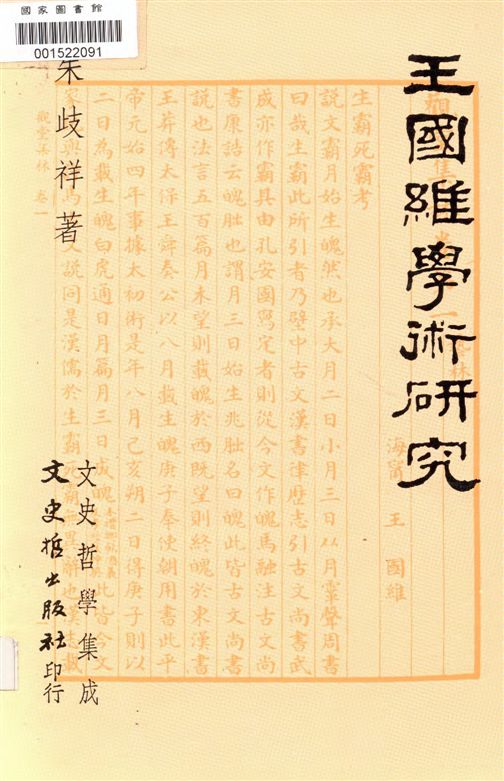 國家圖書館
001522091
王國維學術研究
海寧 王國維
生霸死霸考
說文霸月始生魄然也承大月二日小月三日从月䨣聲周書
曰哉生霸此所引者乃壁中古文漢書律歷志引古文尚書武
成亦作霸其由孔安國寫定者則從今文作魄馬融注古文尚
書康誥云魄朏也謂月三日始生兆朏名曰魄此皆古文尚書
說也法言五百篇月未望則載魄於西既望則終魄於東漢書
王莽傳太保王舜奏公以八月載生魄庚子奉使朝用書此平
帝元始四年事據太初術是年八月己亥朔二日得庚子則以
二日為載生魄白虎通日月篇月三日成魄此皆今文
說同是漢儒於生霸
觀堂集林 卷一
朱歧祥著
文史哲學集成
文史哲出版社印行